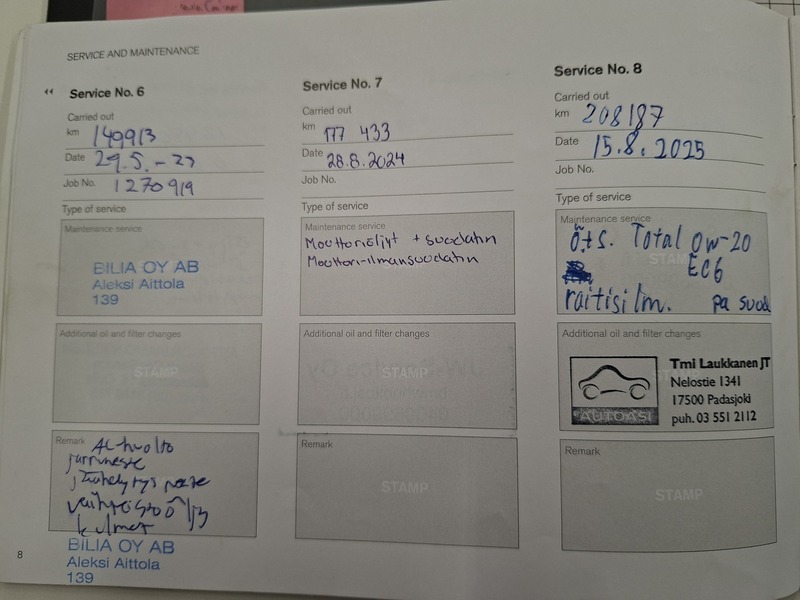 SERVICE AND MAINTENANCE
Service No. 6
Carried out
km 149913
Date 29.5.-23
Job No. 1270919
Type of service
Maintenance service
BILIA OY AB
Aleksi Aittola
139
Additional oil and filter changes
STAMP
Remark
jarruneste
BILIA OY AB
Aleksi Aittola
139
8
Service No. 7
Carried out
km 177 433
Date 28.8.2024
Job No.
Type of service
Maintenance service
Moottoriöljyt + suodatin
Moottori-ilmansuodatin
Additional oil and filter changes
STAMP
Remark
STAMP
Service No. 8
Carried out
km 208187
Date 15.8.2025
Job No.
Type of service
Maintenance service
ö.t.s. Total 0w-20
EC6
raitisilm. pa suod
Additional oil and filter changes
AUTOASI
Tmi Laukkanen JT
Nelostie 1341
17500 Padasjoki
puh. 03 551 2112
Remark
STAMP